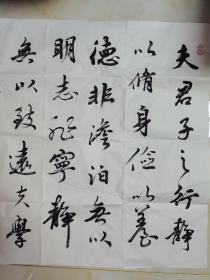 夫君子之行静
以脩身儉以養
德非澹泊無以
明志非寧靜
無以致遠夫學